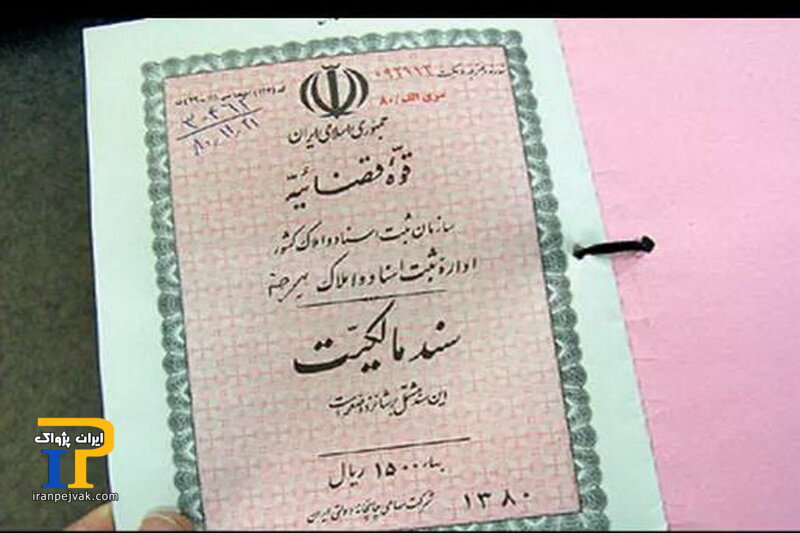 ۰۹۲۱۱۲
سری الف/۸۰
۳۰۲۶۱۲
۸۰,۱۱,۲۱
جمهوری اسلامی ایران
قوّهٔ قضائیّه
سازمان ثبت اسناد و املاک کشور
اداره ثبت اسناد و املاک
سند مالکیّت
این سند مشتمل بر شانزده صفحه است
بهاء ۱۵۰۰ ریال
شرکت سهامی چاپخانه دولتی ایران ۱۳۸۰
ایران پژواک
iranpejvak.com